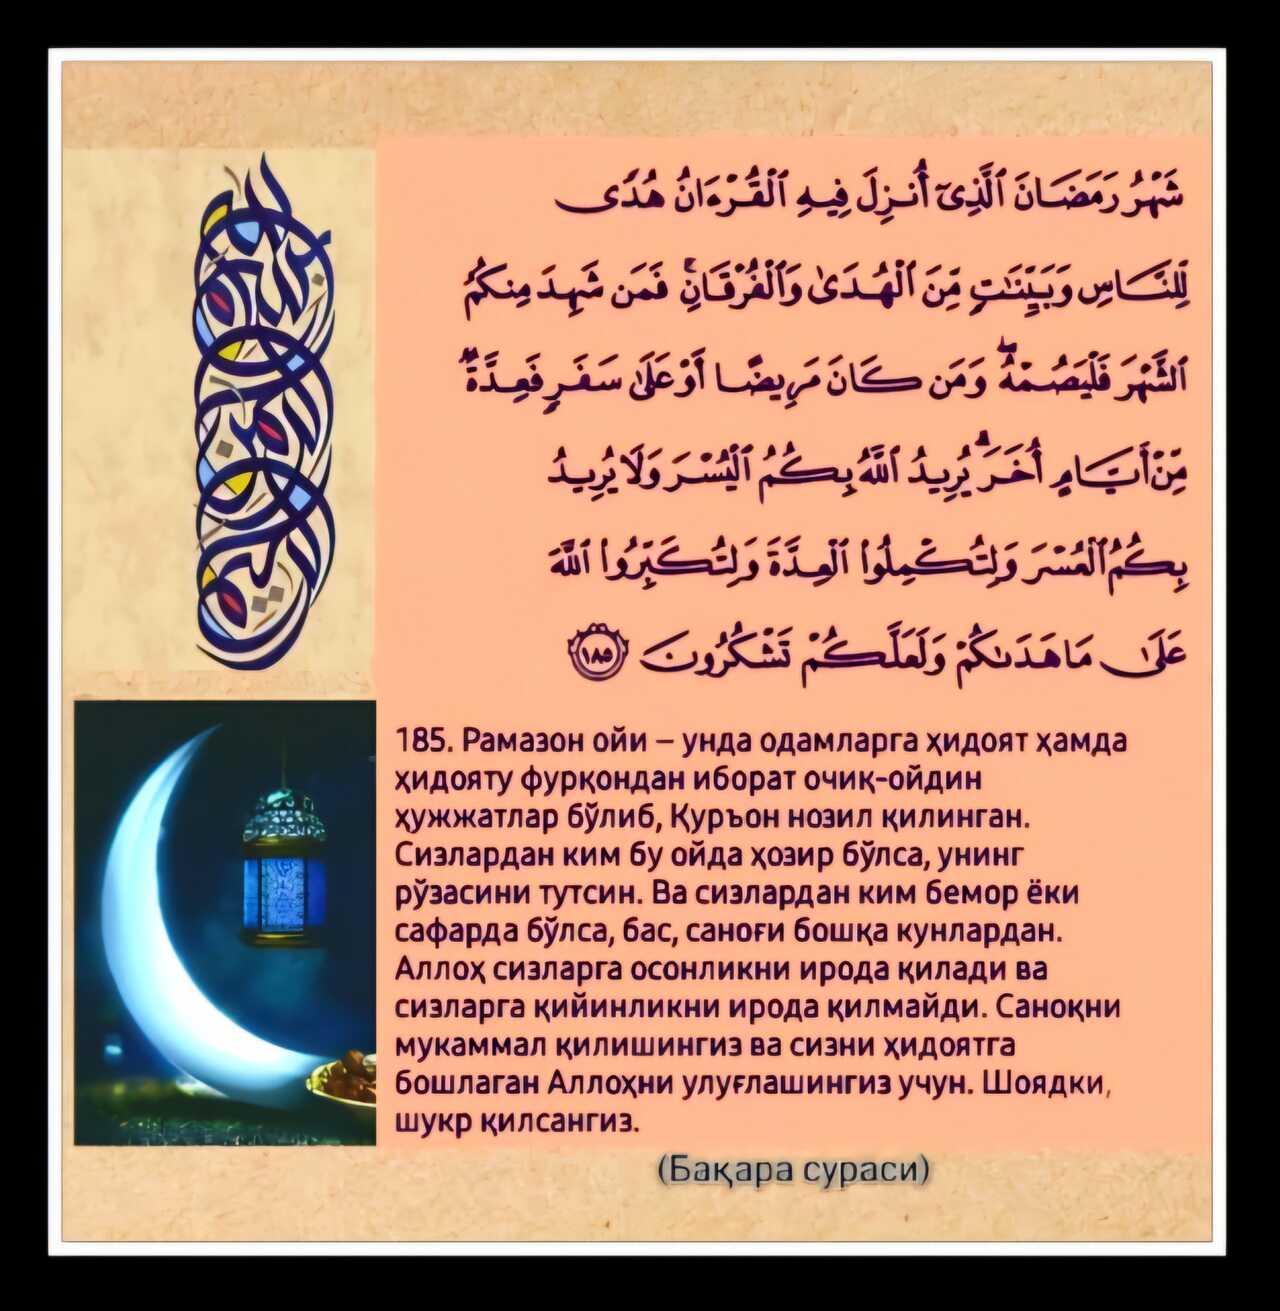 شَهْرُ رَمَضَانَ ٱلَّذِىٓ أُنزِلَ فِيهِ ٱلْقُرْءَانُ هُدًى
لِّلنَّاسِ وَبَيِّنَٰتٍ مِّنَ ٱلْهُدَىٰ وَٱلْفُرْقَانِۚ فَمَن شَهِدَ مِنكُمُ
ٱلشَّهْرَ فَلْيَصُمْهُۖ وَمَن كَانَ مَرِيضًا أَوْ عَلَىٰ سَفَرٍ فَعِدَّةٌ
مِّنْ أَيَّامٍ أُخَرَۗ يُرِيدُ ٱللَّهُ بِكُمُ ٱلْيُسْرَ وَلَا يُرِيدُ
بِكُمُ ٱلْعُسْرَ وَلِتُكْمِلُوا۟ ٱلْعِدَّةَ وَلِتُكَبِّرُوا۟ ٱللَّهَ
عَلَىٰ مَا هَدَىٰكُمْ وَلَعَلَّكُمْ تَشْكُرُونَ ١٨٥
185. Рамазон ойи – унда одамларга ҳидоят ҳамда
ҳидояту фурқондан иборат очиқ-ойдин
ҳужжатлар бўлиб, Қуръон нозил қилинган.
Сизлардан ким бу ойда ҳозир бўлса, унинг
рўзасини тутсин. Ва сизлардан ким бемор ёки
сафарда бўлса, бас, саноғи бошқа кунлардан.
Аллоҳ сизларга осонликни ирода қилади ва
сизларга қийинликни ирода қилмайди. Саноқни
мукаммал қилишингиз ва сизни ҳидоятга
бошлаган Аллоҳни улуғлашингиз учун. Шоядки,
шукр қилсангиз.
(Бақара сураси)